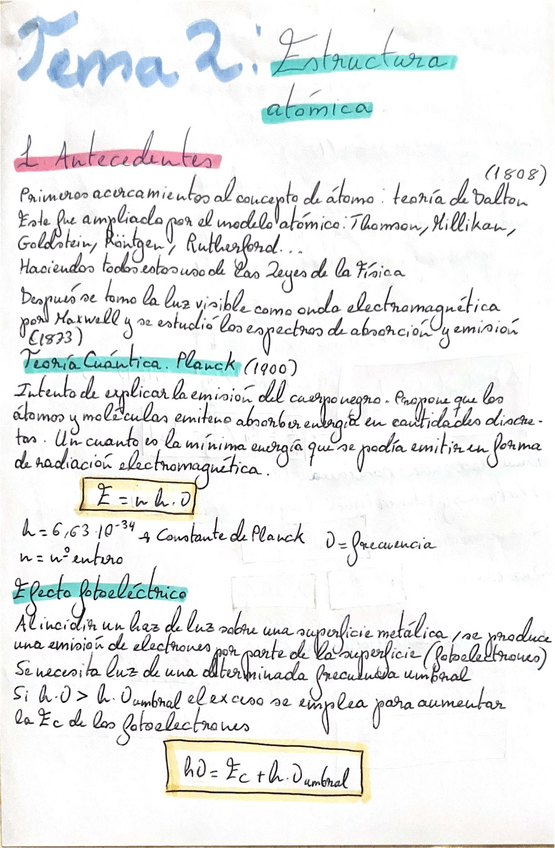 Tema 2: Estructura
atómica
1. Antecedentes
(1808)
Primeros acercamientos al concepto de átomo: teoría de Dalton
Este fue ampliado por el modelo atómico: Thomson, Millikan,
Goldstein, Röntgen, Rutherford...
Haciendos todos estos uso de las leyes de la Física
Después se tomo la luz visible como onda electromagnética
por Maxwell y se estudió los espectros de absorción y emisión
(1873)
Teoría Cuántica. Planck (1900)
Intento de explicar la emisión del cuerpo negro. Propone que los
átomos y moléculas emiten o absorber energía en cantidades discre-
tas. Un cuanto es la mínima energía que se podía emitir en forma
de radiación electromagnética.
E = n h. υ
h = 6,63·10⁻³⁴ → Constante de Planck υ = frecuencia
n = nº entero
Efecto fotoeléctrico
Al incidir un haz de luz sobre una superficie metálica, se produce
una emisión de electrones por parte de la superficie (fotoelectrones)
Se necesita luz de una determinada frecuencia umbral
Si h.υ > h. υumbral el exceso se emplea para aumentar
la Ec de los fotoelectrones
hυ = Ec + h. υumbral